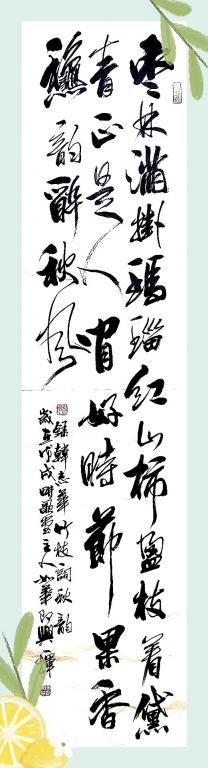 枣林满挂玛瑙红山柿盈枝着黛
青正是人间好时节果香
韵醉秋风
录韩志华竹枝词秋韵
岁在戊戌主人如华即兴